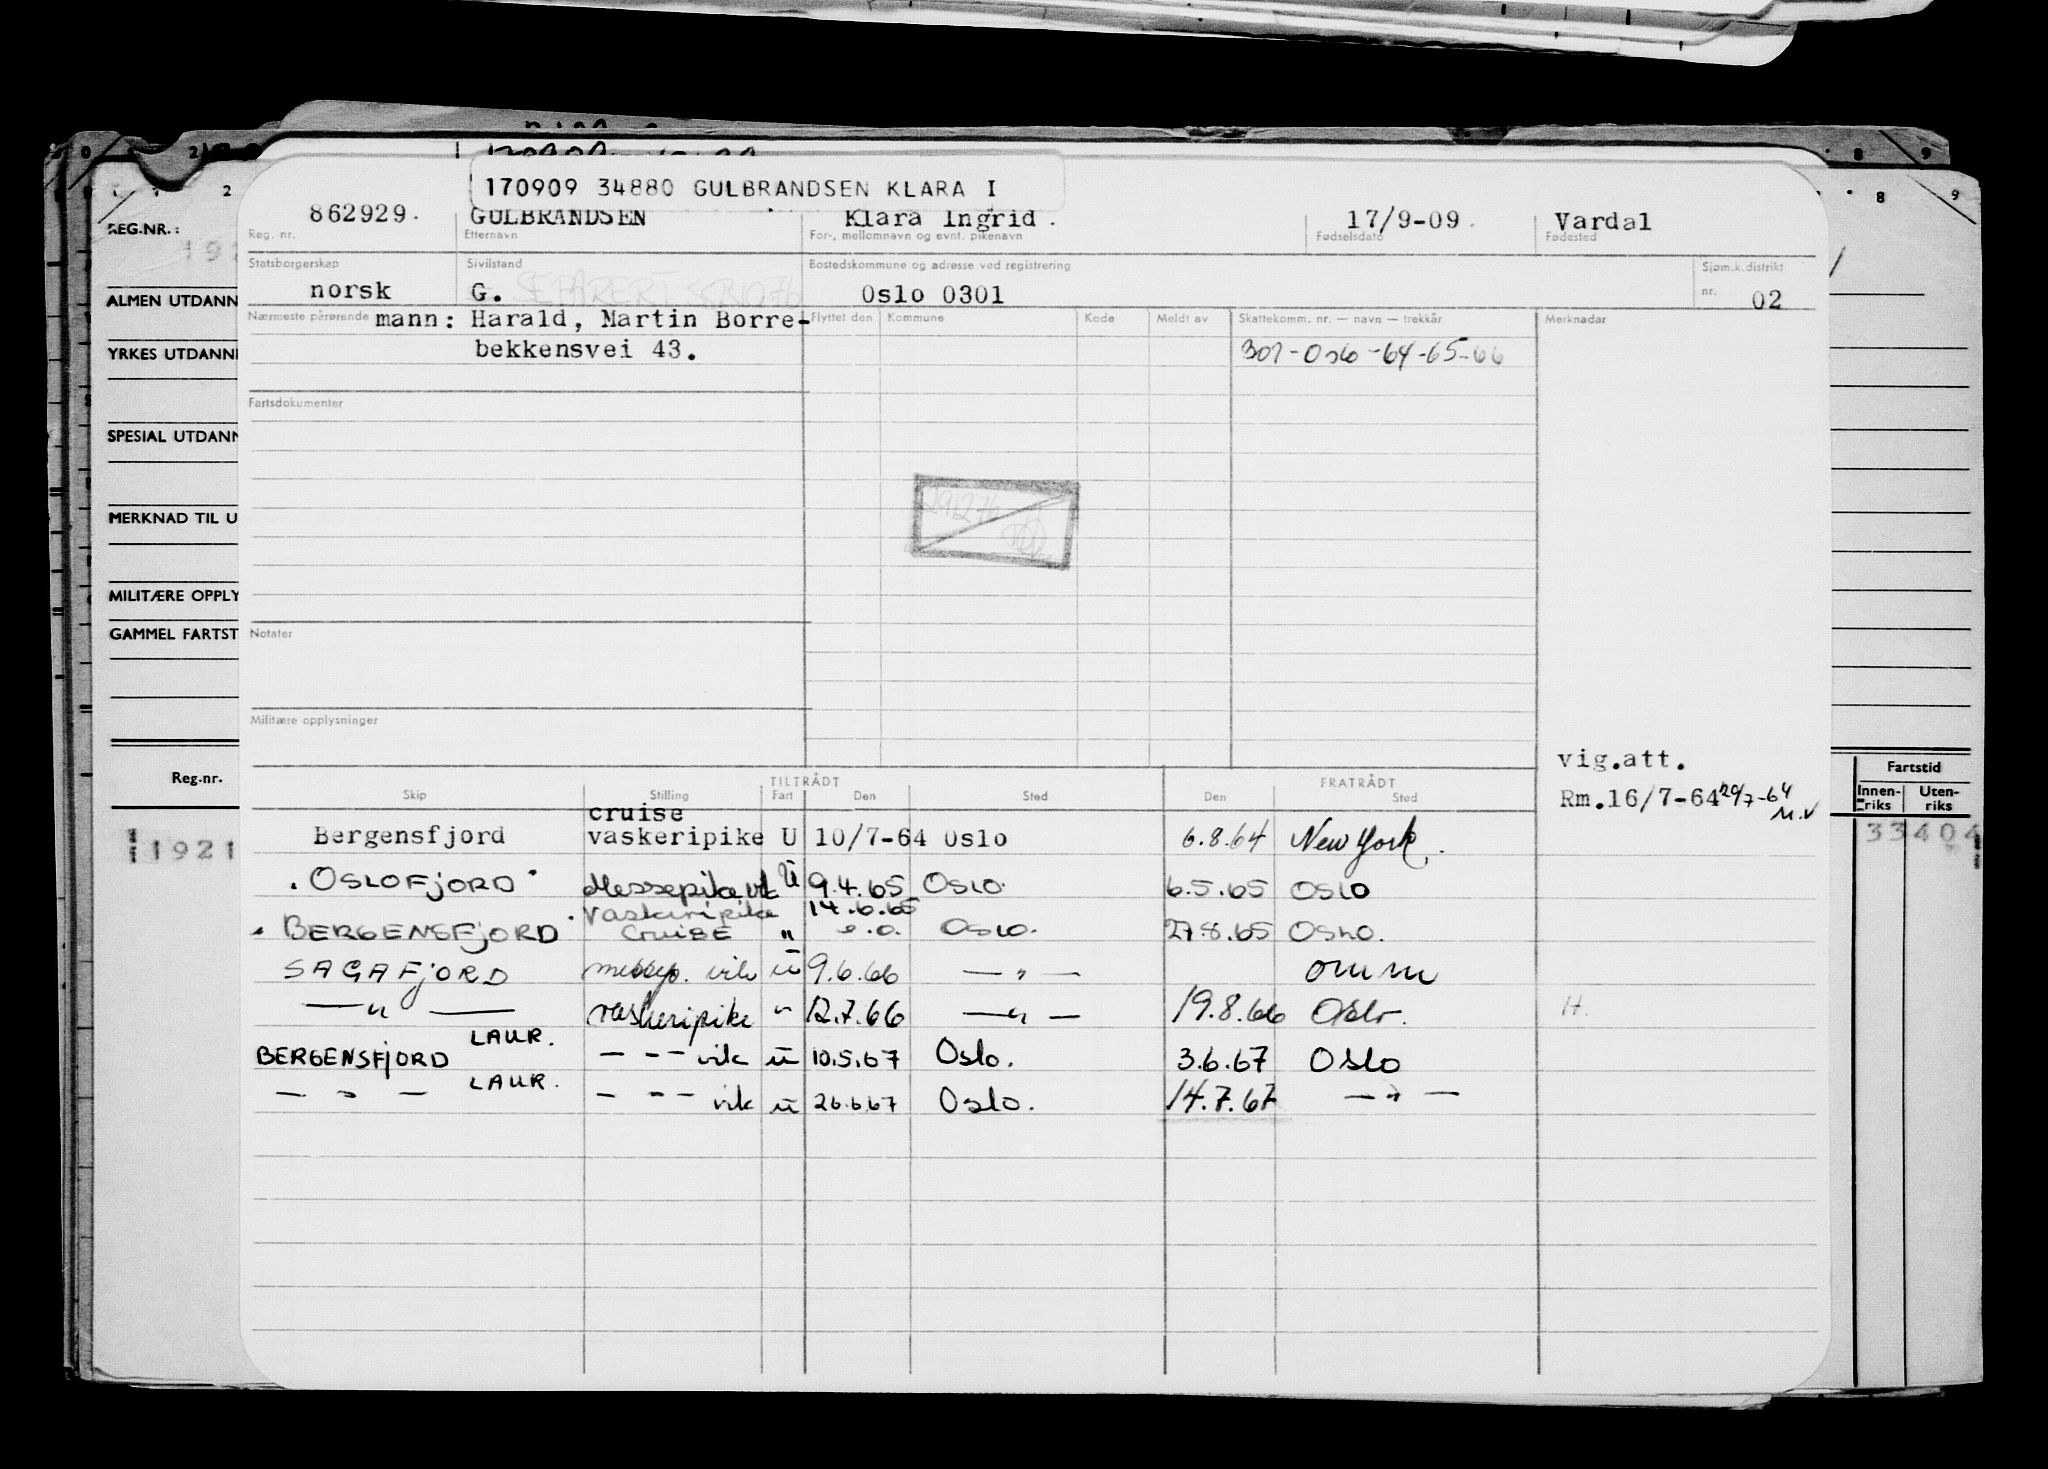 170909 34880 GULBRANDSEN KLARA I
862929. GULBRANDSEN Klara Ingrid. 17/9-09. Vardal
Reg. nr. Etternavn For-, mellomnavn og evnt. pikenavn Fødselsdato Fødested
Statsborgerskap Sivilstand Bostedskommune og adresse ved registrering Sjøm.k.distrikt
norsk G. SEPARERT Oslo 0301 nr. 02
Nærmeste pårørende mann: Harald, Martin Borre- Flyttet den Kommune Kode Meldt av Skattekomm. nr. — navn — trekkår Merknadar
bekkensvei 43. 301-Oslo-64-65-66
Fartsdokumenter
291276
Notater
Militære opplysninger
vig.att.
TILTRÅDT FRATRÅDT
Skip Stilling Fart Den Sted Den Sted Rm.16/7-64 29/7-64
M.V
cruise
Bergensfjord vaskeripike U 10/7-64 Oslo 6.8.64 New York.
OSLOFJORD Messepike vik Ü 9.4.65 OSLO. 6.5.65 OSLO
Vaskeripike 14.6.65
BERGENSFJORD CRUISE " e.o. OSLO. 27.8.65 OSLO.
SAGAFJORD messep. vik ü 9.6.66 — " — omm
— " — vaskeripike " 12.7.66 — " — 19.8.66 Oslo. H.
LAUR.
BERGENSFJORD — " — vik ü 10.5.67 Oslo. 3.6.67 OSLO
LAUR.
— " — — " — vik ü 26.6.67 Oslo. 14.7.67 — " —
REG.NR.:
ALMEN UTDANN
YRKES UTDANN
SPESIAL UTDANN
MERKNAD TIL U
MILITÆRE OPPLY
GAMMEL FARTST
Reg.-nr.
1921
Fartstid
Innen-riks Uten-riks
33404
2 8 9
8 9